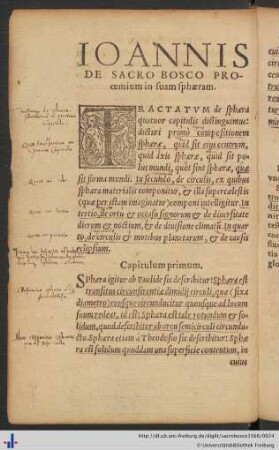 IOANNIS
DE SACRO BOSCO PRO-
œmium in suam sphæram.
TRACTATVM de sphæra
quatuor capitulis distinguemus:
dicturi primò compositionem
sphæræ, quid sit eius centrum,
quid axis sphæræ, quid sit po-
lus mundi, quot sint sphæræ, quæ
sit forma mundi. In secundo, de circulis, ex quibus
sphæra materialis componitur, & illa supercælestis
(quæ per istam imaginatur) componi intelligitur. In
tertio, de ortu & occasu signorum & de diuersitate
dierum & noctium, & de diuisione climatū. In quar-
to, de circulis & motibus planetarum, & de causis
eclipsium.
Capitulum primum.
Sphæra igitur ab Euclide sic describitur: Sphæra est
transitus circumferentiæ dimidij circuli, quæ (fixa
diametro) eousque circunducitur quousque ad locum
suum redeat, id est: Sphæra est tale rotundum & so-
lidum, quod describitur ab arcu semicirculi circundu-
cto. Sphæra etiam à Theodosio sic describitur: Sphæ-
ra est solidum quoddam vna superficie contentum, in
cuius
http://dl.ub.uni-freiburg.de/diglit/sacrobosco1566/0024
© Universitätsbibliothek Freiburg